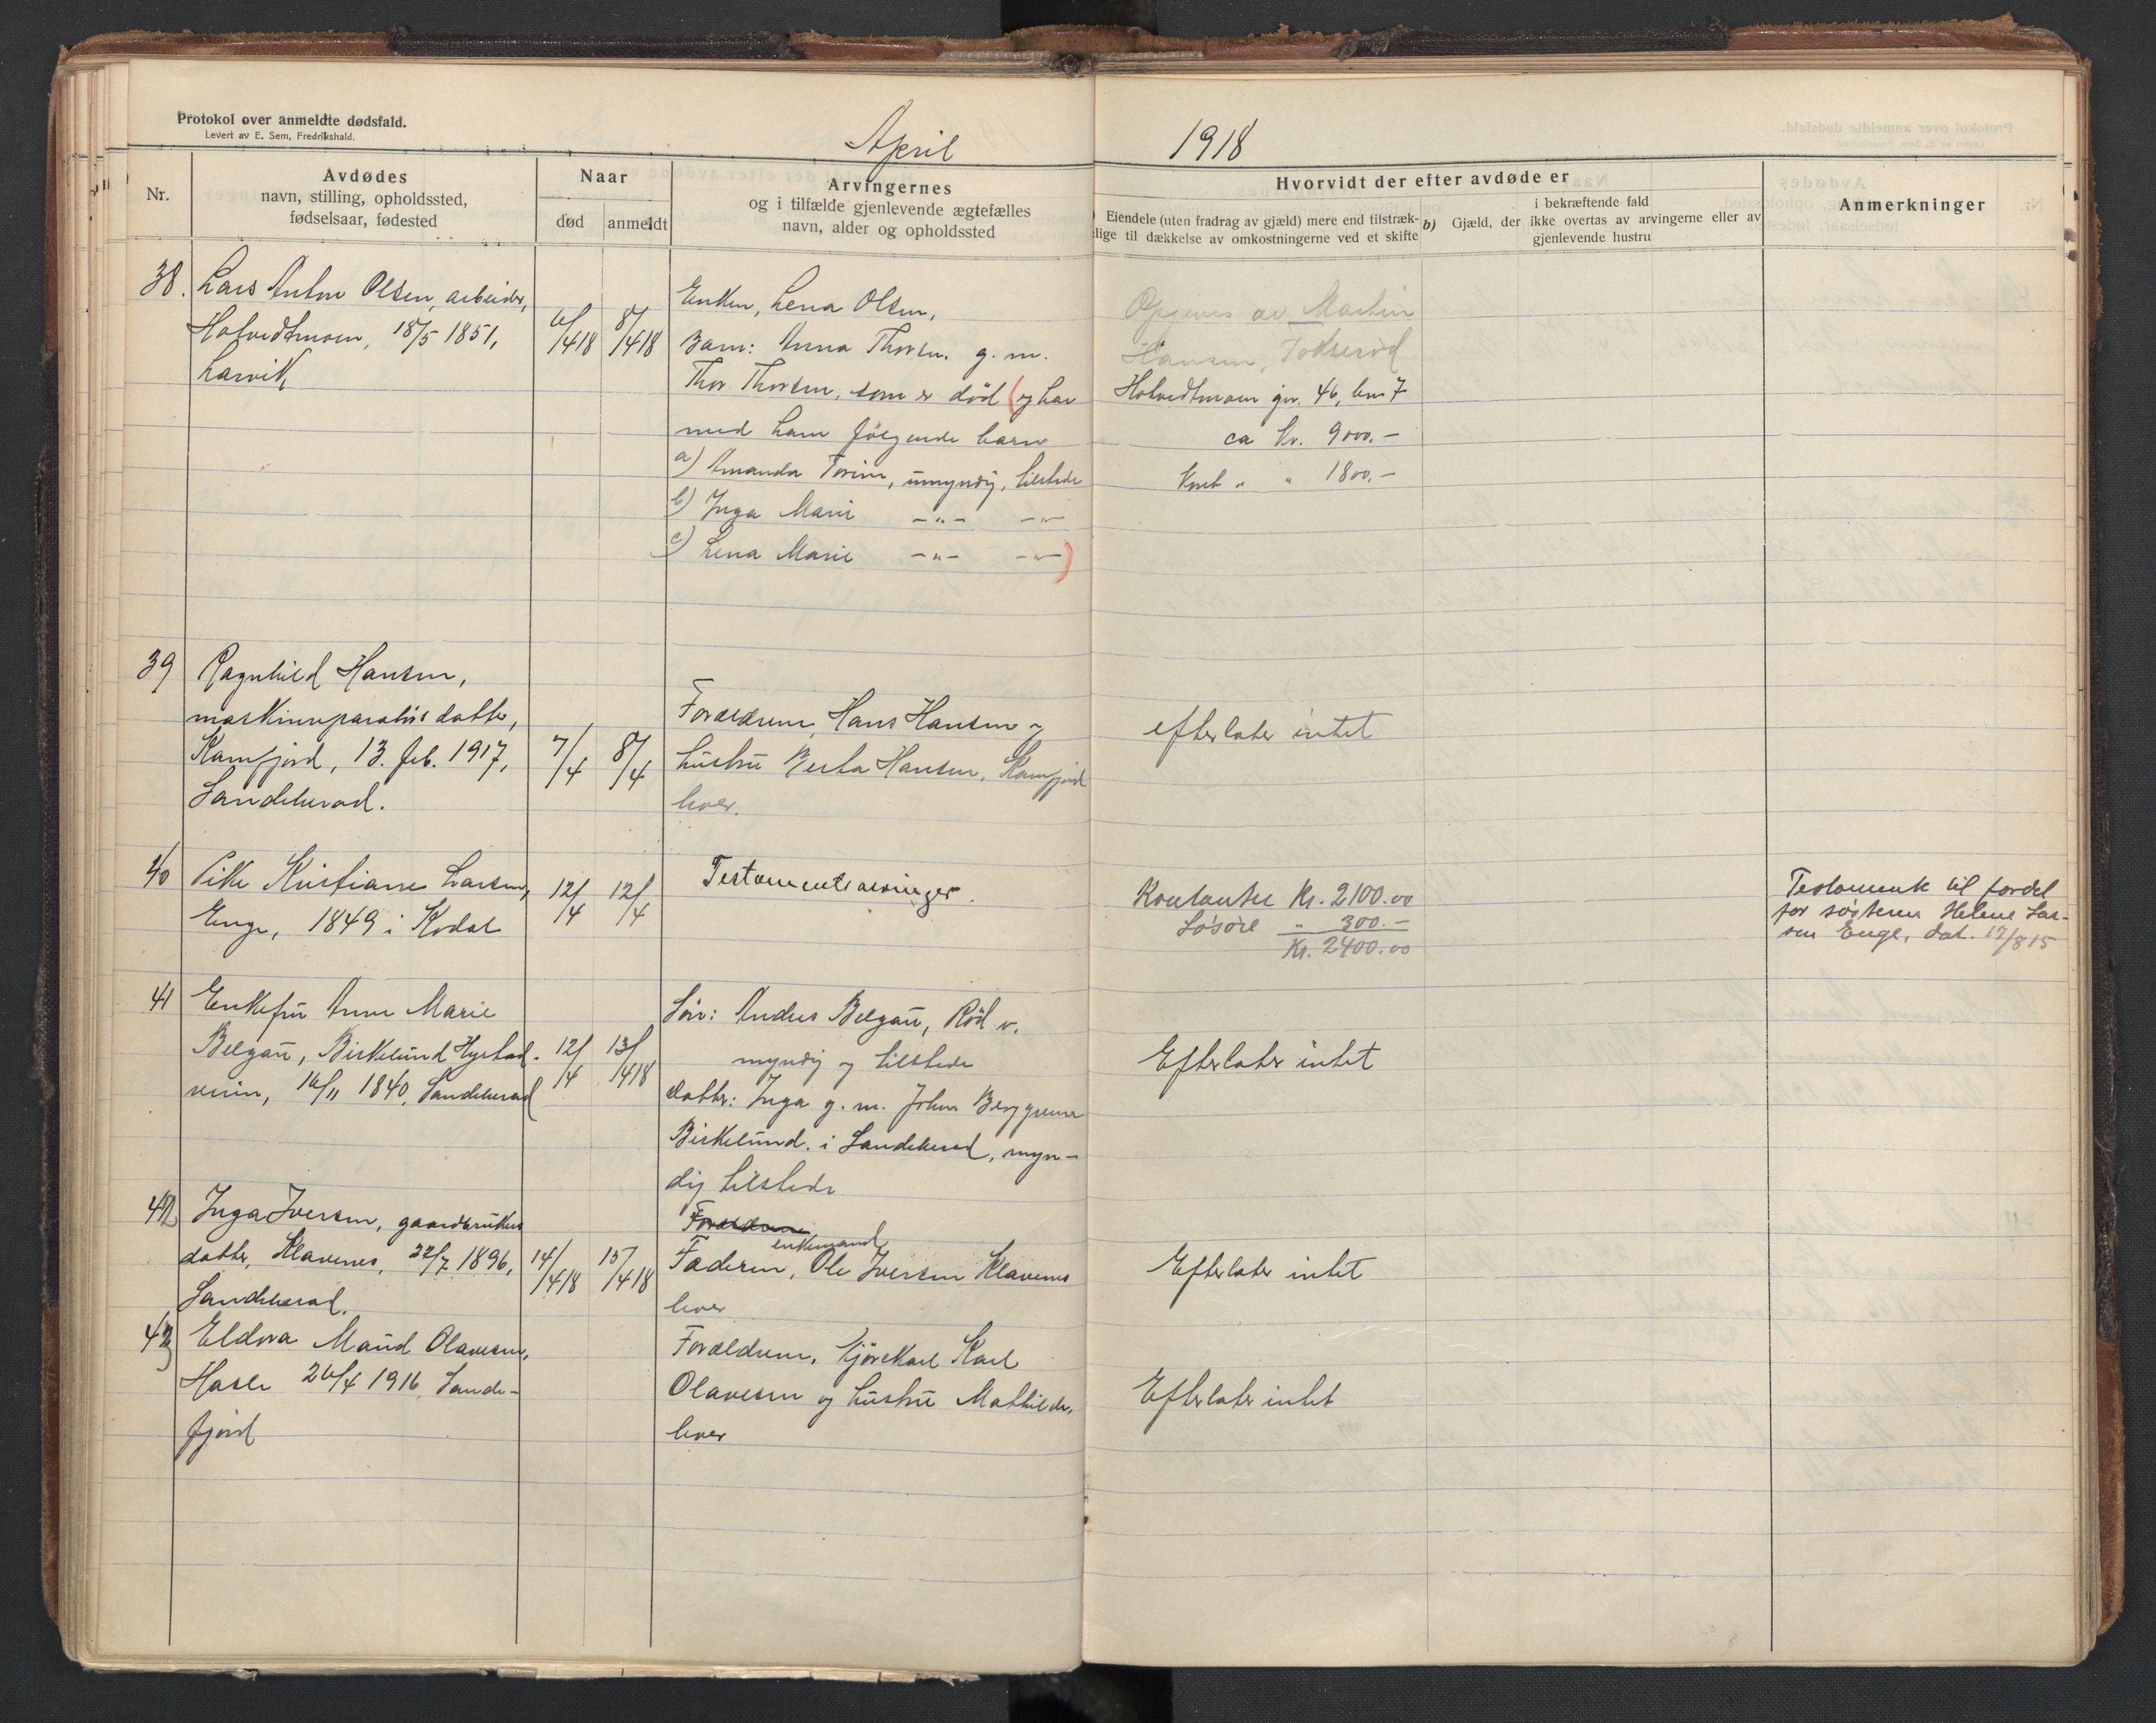 Protokol over anmeldte dødsfald.
Levert av E. Sem, Fredrikshald.
April 1918
Nr.
Avdødes
navn, stilling, opholdssted,
fødselsaar, fødested
Naar
død
anmeldt
Arvingernes
og i tilfælde gjenlevende ægtefælles
navn, alder og opholdssted
Hvorvidt der efter avdøde er
Eiendele (uten fradrag av gjæld) mere end tilstræk-
lige til dækkelse av omkostningerne ved et skifte
b) Gjæld, der
i bekræftende fald
ikke overtas av arvingerne eller av
gjenlevende hustru
Anmerkninger
38. Lars Anton Olsen, arbeider,
Hotvedtmoen, 18/5 1851,
Larvik
6/4 18
8/4 18
Enken, Lena Olsen,
Barn: Anna Thorsen g. m.
Thor Thorsen, som er død (og har
med ham følgende barn
a) Amanda, umyndig, tilstede
b) Inga Marie -"- -"-
c) Lena Marie -"- -"-)
Opgives av Martin
Hansen,
Hotvedtmoen gnr. 46, bnr 7
ca kr. 9000.-
" " 1800.-
39 Ragnhild Hansen,
maskinreparatørs datter,
Kamfjord, 13. feb. 1917,
Sandeherad.
7/4
8/4
Forældrene, Hans Hansen og
hustru Berta Hansen, Kamfjord
lever.
efterlater intet
40 Pike Kristiane Larsen,
Enge, 1849 i Kodal
12/4
12/4
Testamentsarvinger.
Kontanter Kr. 2100.00
Løsøre " 300.-
Kr. 2400.00
Testamente til fordel
for søsteren Helene Lar-
sen Enge, dat. 17/8 15
41 Enkefru Anne Marie
Belgau, Birkelund Hystad-
veien, 16/11 1840, Sandeherad
12/4
13/4 18
Søn: Anders Belgau, Rød v.
myndig og tilstede
datter: Inga g. m. Johan Berggrenn
Birkelund i Sandeherad, myn-
dig tilstede
Efterlater intet
42 Inga Iversen, gaardbrukers
datter, Klavenes, 22/7 1896,
Sandeherad.
14/4 18
15/4 18
Forældrene
enkemand
Faderen, Ole Iversen Klavenes
lever
Efterlater intet
43 Eldora Maud Olavesen,
Hasle 26/4 1916, Sande-
fjord
Forældrene, kjørekarl Karl
Olavesen og hustru Mathilde,
lever
Efterlater intet